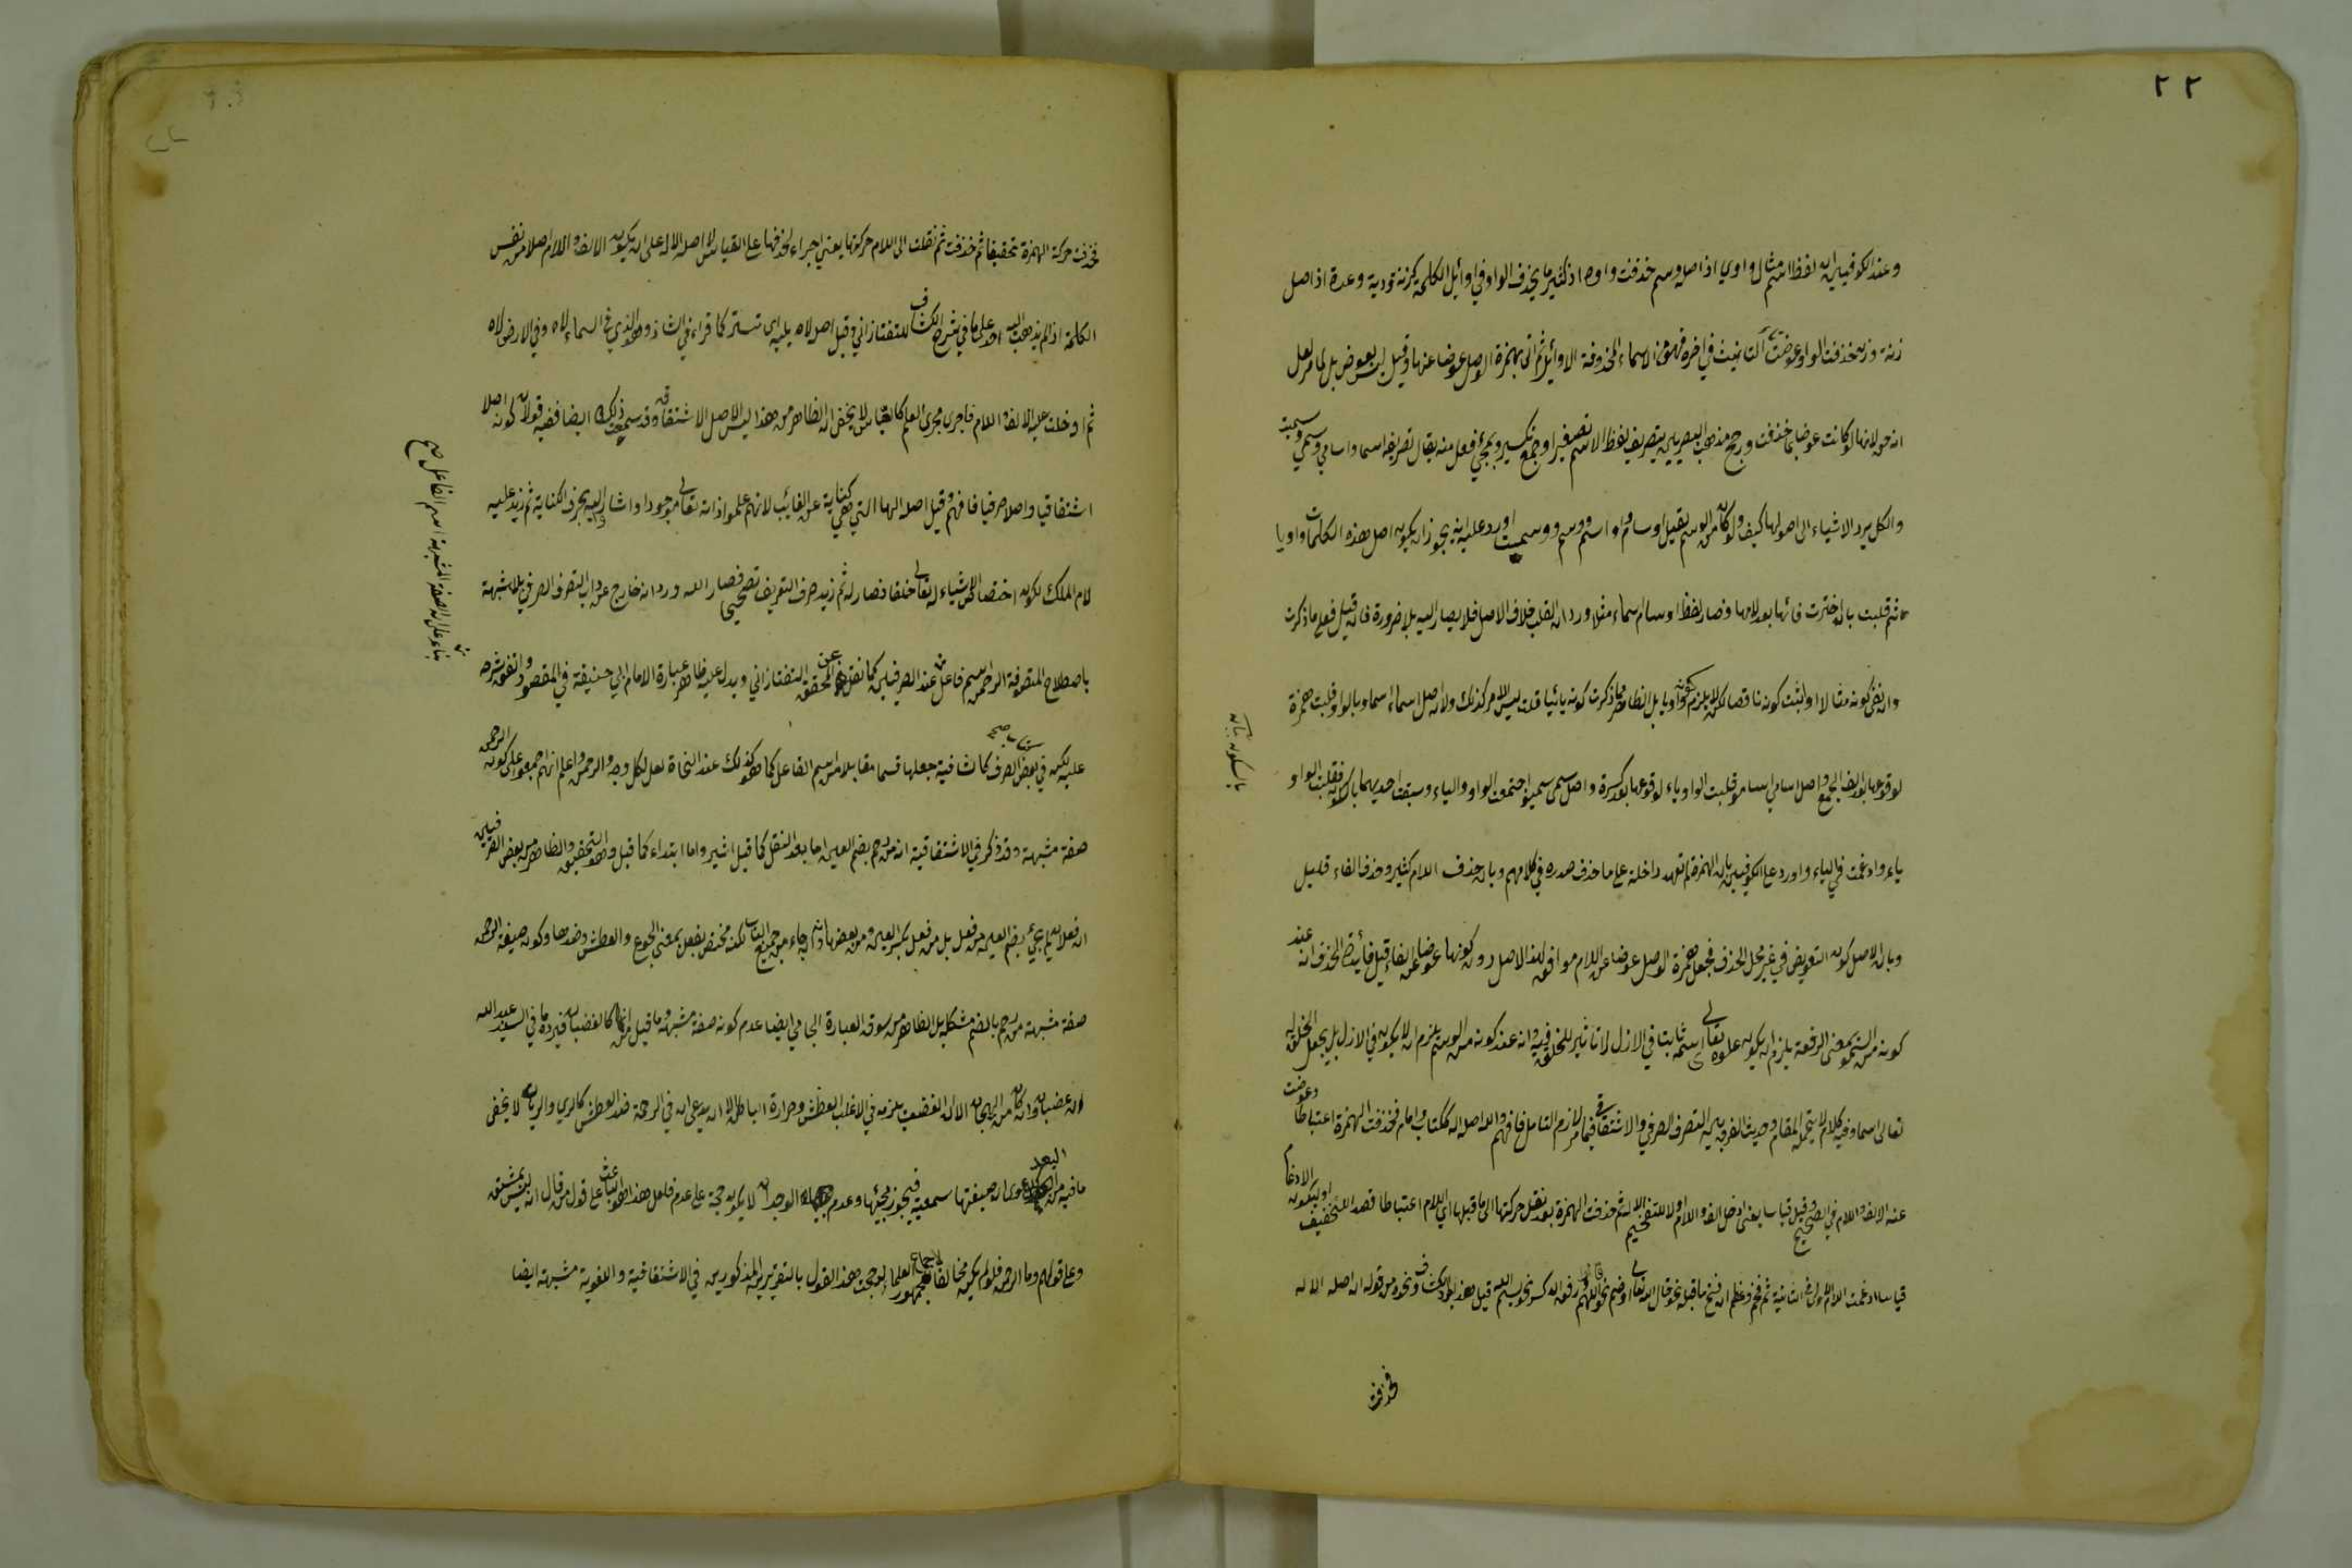 ٢٢
وعند الكوفيين ان لفظ اسم مثال واوي اذ اصله وسم حذفت واوه اذ كثيرا ما يحذف الواو في اوائل الكلمة كزنة ودية وعدة اذ اصل
زنة وزن حذفت الواو وعوضت تاء التانيث في اخره فهو من الاسماء المحذوفة الاوائل ثم اتى بهمزة الوصل عوضا عنها وقيل ليس بعوض بل لما مر لعل
لانها لو كانت عوضا لما حذفت ورجح مذهب البصريين بتصريف لفظ الاسم تصغيرا وجمع تكسير وبمجئ فعل منه يقال تصريفه اسما واسامي وسمي وسميت
والكل يرد الاشياء الى اصولها كيف ولو كان من الوسم لقيل اوسام واواسم ووسيم ووسمت اورد عليه انه يجوز ان يكون اصل هذه الكلمات واويا
ثم قلبت بان اخرت فائها بعد لامها فصار لفظ اوسام اسماء مثلا ورد ان القلب خلاف الاصل فلا يصار اليه بلا ضرورة فان قيل فعلى ما ذكرت
وان نفي كونه مثالا اوليثبت كونه ناقصا لكن لا يلزم كونه واويا بل الظاهر مما ذكرت كونه يائيا قلت ليس الامر كذلك ولان اصل اسماء اسماو بالواو قلبت همزة
لوقوعها بعد الف الجمع واصل اسامي اسامو قلبت الواو ياء لوقوعها بعد كسرة واصل سمي سميو اجتمعت الواو والياء وسبقت احديهما بالسكون فقلبت الواو
ياء وادغمت في الياء واورد على الكوفيين بان الهمزة لم تعهد داخلة على ما حذف صدره في كلامهم وبان حذف اللام كثير وحذف الفاء قليل
وبان الاصل كون التعويض في غير محل الحذف فجعل همزة الوصل عوضا عن اللام موافق لهذا الاصل دون كونها عوضا عن الفاء قيل فائدة الخلاف انه عند
كونه من السمو بمعنى الرفعة يلزم ان يكون علوه تعالى ثابتا في الازل لا تاثير للخلق فيه وانه عند كونه من الوسم يلزم ان لا يكون في الازل بل يجعل الخلق له
تعالى اسما وفيه كلام لا يتحمله المقام وحديث الفرق بين التصرف الصرفي والاشتقاقي فيما مر لازم التامل فافهم والله اصله اله ككتاب وامام فحذفت الهمزة اعتباطا وعوضت
عنه الالف واللام في الصحيح وقيل قياسا يعني ادخل الف واللام اولا للتفخيم الاله ثم حذفت الهمزة بعد نقل حركتها الى ما قبلها اي اللام اعتباطا قصدا للتخفيف او ليكون الادغام
قياسا ادغمت اللام الاولى في الثانية ثم فخم وعظم ان فتح ما قبله نحو قال الله تعالى او ضم نحو اللهم رفعه الله كسر نحو بسم الله قيل هذا يلوذ بالكشاف ونحوه من قوله ان اصله الاله
فحذفت
بالسكون بيانه
فحذفت حركة الهمزة تحقيقا ثم حذفت ثم نقلت الى اللام حركتها يعني اجراء لحذفها على القياس لا اصله الال على ان يكون الالف واللام اصلا من نفس
الكلمة اذ لم يذهب اليه احد على ما في شرح الكشاف للتفتازاني وقيل اصله لاه يليه اي تستر كما قراء في الشاذ وهو الذي في السماء لاه وفي الارض لاه
ثم ادخلت عليه الالف واللام فاجري مجرى العلم كالعباس لا يخفى ان الظاهر من هذا ليس الاصل الاشتقاقي وقد سمعت ذلك ايضا ففيه قولان لكونه اصلا
اشتقاقيا واصلا صرفيا فافهم وقيل اصله الهاء التي هي كناية عن الغائب لانهم علموا ذاته تعالى موجودا واشاروا اليه بحرف الكناية ثم زيد عليه
لام الملك لكون اختصاص الاشياء له تعالى خلقا فصار له ثم زيد حرف التعريف فصار الله ورد انه خارج عن داب التصرف الصرفي بلا شبهة
باصطلاح المتصوفة الرحمن اسم فاعل عند الصرفيين كما نقل عن المحقق التفتازاني ويدل عليه ظاهر عبارة الامام ابي حنيفة في المقصود واتفق شرحه
عليه لكن في بعض الصرف كالشافية جعلها قسما مقابلا من اسم الفاعل كما هو كذلك عند النحاة لعل لكل وجه والرحمن واعلم انهم اجمعوا على كون الرحمن
صفة مشبهة وقد ذكر في الاشتقاقية انه من رحم بضم العين اما بعد النقل كما قيل اشير واما ابتداء كما قيل وهو التحقيق والظاهر من بعض الصرفيين
ان فعلان لم يجئ بضم العين من فعل بل من فعل بكسر العين ومن بعضها انه جاء من جميع الباب لكنه مختص بفعل بمعنى الجوع والعطش وضدها وكون صيغة الرحمن
صفة مشبهة من رحم بالضم مشكل بل الظاهر من سوق العبارة الجامي ايضا عدم كونه صفة مشبهة وما قيل من انها كالغضبان فيرده ما في السيد عبد الله
ان غضبان وان كان من الهيجان الا ان الغضب يلزمه في الاغلب العطش وحرارة الباطن الا ان يدعى ان في الرحمة ضد العطش كالري والريان لا يخفى
ما فيه من البعد دعوى ان صيغتها سمعية فيجوز مجيئها وعدم الوجدان لا يكون حجة على عدم فلعل هذا هو الباعث على قول من قال انه ليس بمشتق
وعلى قولهم وما الرحمن فلو لم يكن مخالفا لاجماع جمهور العلماء لرجحت هذا القول بالتقريرين المذكورين في الاشتقاقية واللغوية مشبهة ايضا
بناء على ان الصفة المشبهة اسم الفاعل صح